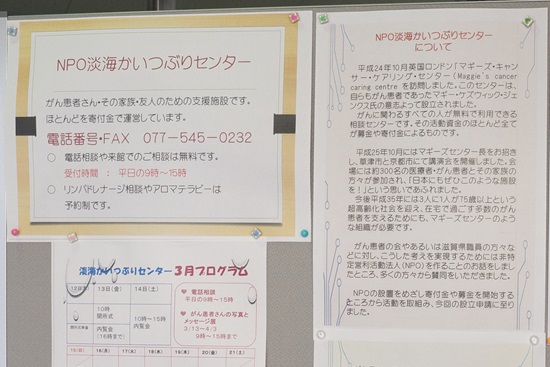 NPO淡海かいつぶりセンター
がん患者さん・その家族・友人のための支援施設です。
ほとんどを寄付金で運営しています。
電話番号・FAX　077-545-0232
○　電話相談や来館でのご相談は無料です。
受付時間　：　平日の9時～15時
○　リンパドレナージ相談やアロマテラピーは
予約制です。
淡海かいつぶりセンター　3月プログラム
13日(金)　14日(土)
10時
開所式
内覧会
(16時まで)
10時～15時
内覧会
♥　電話相談
平日の9時～15時
♥　がん患者さんの写真と
メッセージ展
3/13～4/3
9時～16時まで
NPO淡海かいつぶりセンター
について
平成24年10月英国ロンドン「マギーズ・キャン
サー・ケアリング・センター(Maggie's cancer
caring centre)を訪問しました。このセンターは、
自らもがん患者であったマギー・ケズウィック・ジェ
ンクス氏の意志よって設立されました。
がんに関わるすべての人が無料で利用できる
相談センターです。その活動資金のほとんど全て
が募金や寄付金によるものです。
平成25年10月にはマギーズセンター長をお招き
し、草津市と京都市にて講演会を開催しました。会
場には約300名の医療者・がん患者とその家族の
方々が参加され、「日本にもぜひこのような施設
を！」という思いであふれました。
今後平成35年には3人に1人が75歳以上という
超高齢化社会を迎え、在宅で過ごす多数のがん
患者を支えるためにも、マギーズセンターのような
組織が必要です。
がん患者の会やあるいは滋賀県職員の方々な
どに対し、こうした考えを実現するためには非特
定営利活動法人(NPO)を作ることのお話をしまし
たところ、多くの方から賛同をいただきました。
NPOの設置をめざし寄付金や募金を開始する
ところから活動を取組み、今回の設立申請に至り
ました。